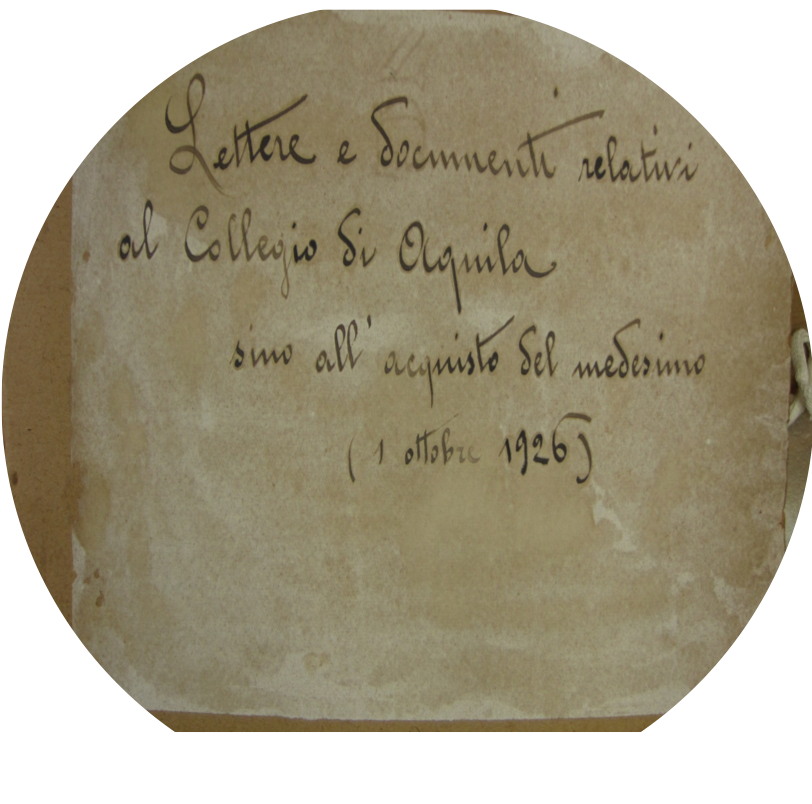 Lettere e documenti relativi
al Collegio di Aquila
sino all' acquisto del medesimo
(1 ottobre 1926)